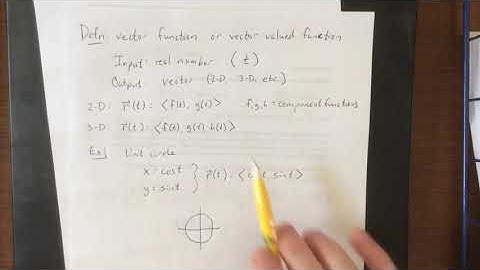 Defn: vector function or vector valued function
Input: real number (t)
Output: vector (2-D, 3-D, etc.)
2-D: r(t) = <f(t), g(t)> f,g,h = component functions
3-D: r(t) = <f(t), g(t), h(t)>
Ex) Unit circle
x = cost
y = sint } r(t) = < , sint>